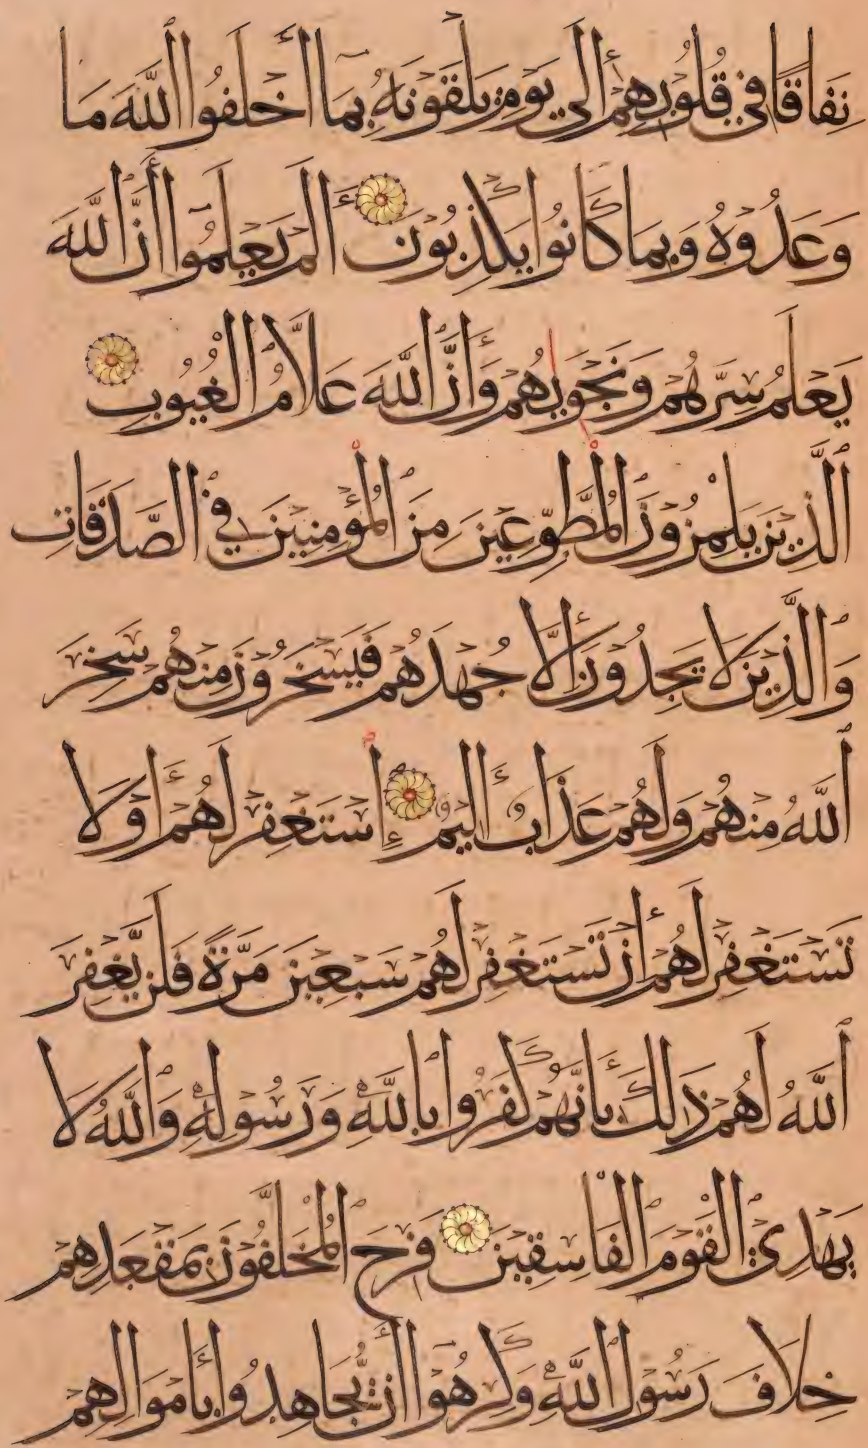 نِفَاقًا فِي قُلُوبِهِمْ إِلَى يَوْمِ يَلْقَوْنَهُ بِمَا أَخْلَفُوا اللَّهَ مَا
وَعَدُوهُ وَبِمَا كَانُوا يَكْذِبُونَ أَلَمْ يَعْلَمُوا أَنَّ اللَّهَ
يَعْلَمُ سِرَّهُمْ وَنَجْوَيهُمْ وَأَنَّ اللَّهَ عَلَّامُ الْغُيُوبِ
الَّذِينَ يَلْمِزُونَ الْمُطَّوِّعِينَ مِنَ الْمُؤْمِنِينَ فِي الصَّدَقَاتِ
وَالَّذِينَ لَا يَجِدُونَ إِلَّا جُهْدَهُمْ فَيَسْخَرُونَ مِنْهُمْ سَخِرَ
اللَّهُ مِنْهُمْ وَلَهُمْ عَذَابٌ أَلِيمٌ إِسْتَغْفِرْ لَهُمْ أَوْ لَا
تَسْتَغْفِرْ لَهُمْ إِنْ تَسْتَغْفِرْ لَهُمْ سَبْعِينَ مَرَّةً فَلَنْ يَغْفِرَ
اللَّهُ لَهُمْ ذَالِكَ بِأَنَّهُمْ كَفَرُوا بِاللَّهِ وَرَسُولِهِ وَاللَّهُ لَا
يَهْدِي الْقَوْمَ الْفَاسِقِينَ فَرِحَ الْمُخَلَّفُونَ بِمَقْعَدِهِمْ
خِلَافَ رَسُولِ اللَّهِ وَكَرِهُوا أَنْ يُجَاهِدُوا بِأَمْوَالِهِمْ